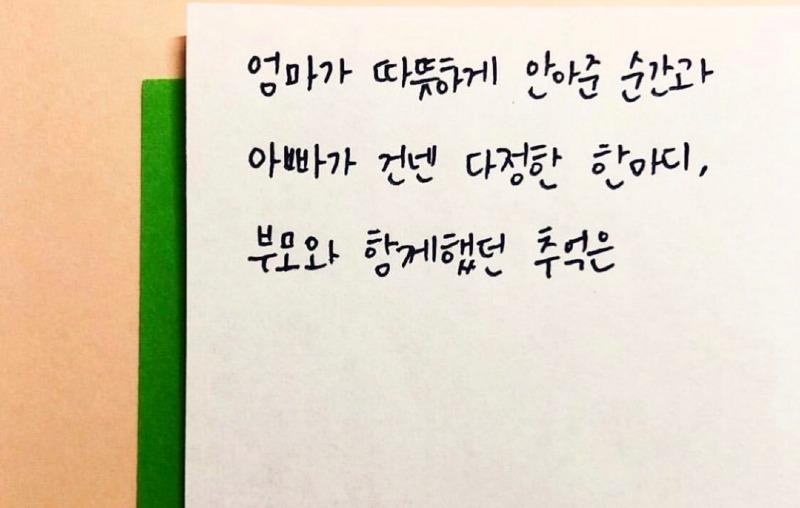 엄마가 따뜻하게 안아준 순간과
아빠가 건넨 다정한 한마디,
부모와 함께했던 추억은